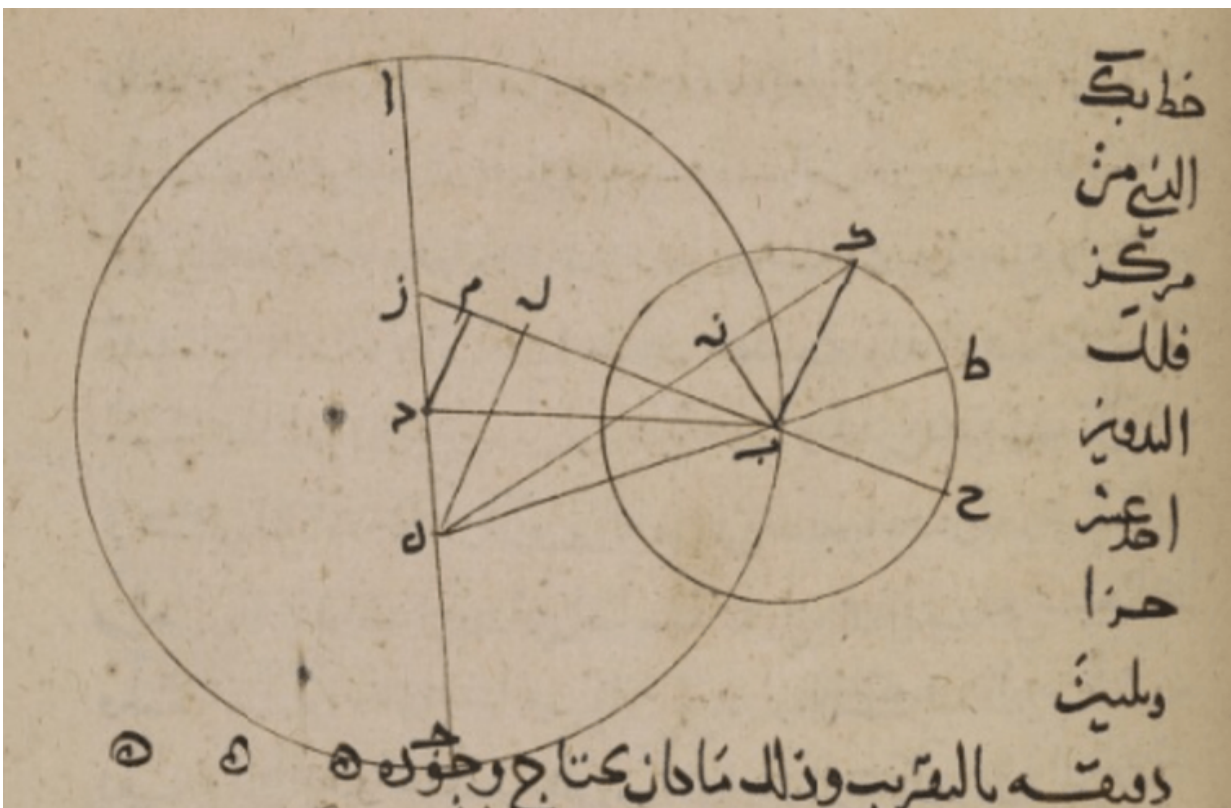 خط بک
الذي من
مركز
فلك
التدوير
احد عشر
جزا
وثلثين
دقيقه بالتقريب وذلك ما كان يحتاج وجوده ه ه ه
ا
ز
م
ل
د
ه
ك
ن
ب
ط
ح
ج